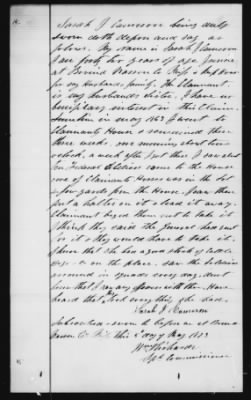 Sarah J Cameron being duly
sworn doth depose and say as
follows. My name is Sarah J Cameron
I am forty two years of age, I reside
at Warren Co Miss & keep house
for my husbands family. The Claimant
is my husbands sister. I have no
beneficiary interest in this Claim.
Sometime in May 1863 I went to
Claimants House & remained there
three weeks. one morning about
oclock, a week after I got there I saw
soldiers came to the House
one of Claimants Horses was in the lot
a few yards from the House, saw them
put a halter on it & lead it away.
Claimant begged them not to take it
I think they said the General had sent
for it & they would have to take it.
stock of
on the place. saw the Soldiers
around in squads every day, dont
know that I saw any officers with them. Have
heard that took everything she had.
Sarah J Cameron
Subscribed & sworn to before me at
Warren Co Miss this day of May 1873
Wm
Spl Commissioner